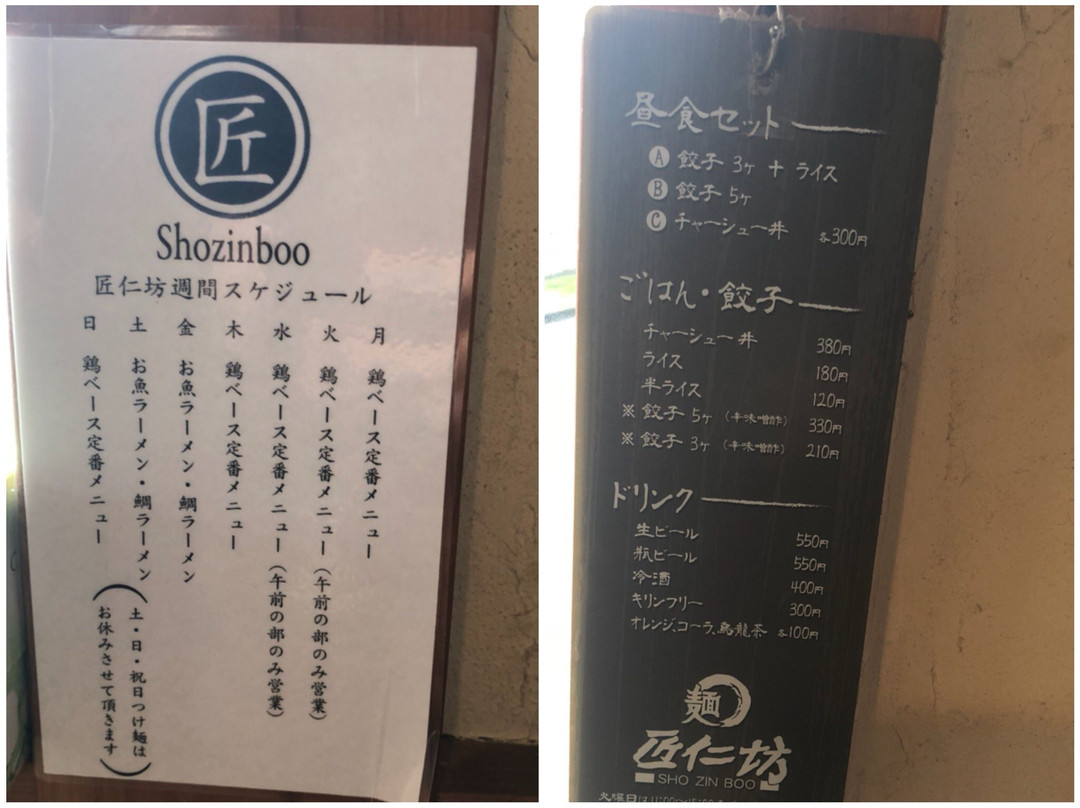 匠
Shozinboo
匠仁坊週間スケジュール
月 鶏ベース定番メニュー
火 鶏ベース定番メニュー（午前の部のみ営業）
水 鶏ベース定番メニュー（午前の部のみ営業）
木 鶏ベース定番メニュー
金 お魚ラーメン・鯛ラーメン
土 お魚ラーメン・鯛ラーメン
日 鶏ベース定番メニュー
（土・日・祝日つけ麺は
お休みさせて頂きます）
昼食セット
A 餃子 3ヶ + ライス
B 餃子 5ヶ
C チャーシュー丼 各300円
ごはん・餃子
チャーシュー丼 380円
ライス 180円
半ライス 120円
※ 餃子 5ヶ （辛味噌酢） 330円
※ 餃子 3ヶ （辛味噌酢） 210円
ドリンク
生ビール 550円
瓶ビール 550円
冷酒 400円
キリンフリー 300円
オレンジ、コーラ、烏龍茶 各100円
麺
匠仁坊
SHO ZIN BOO